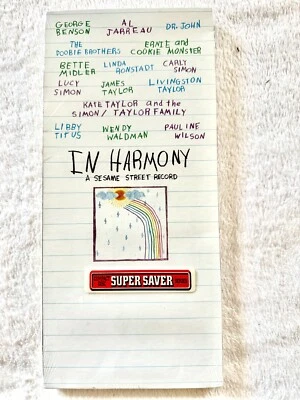 GEORGE BENSON
AL JARREAU
DR. JOHN
THE DOOBIE BROTHERS
ERNIE and COOKIE MONSTER
BETTE MIDLER
LINDA RONSTADT
CARLY SIMON
LUCY SIMON
JAMES TAYLOR
LIVINGSTON TAYLOR
KATE TAYLOR and the
SIMON/TAYLOR FAMILY
LIBBY TITUS
WENDY WALDMAN
PAULINE WILSON
IN HARMONY
A SESAME STREET RECORD
SUPER SAVER